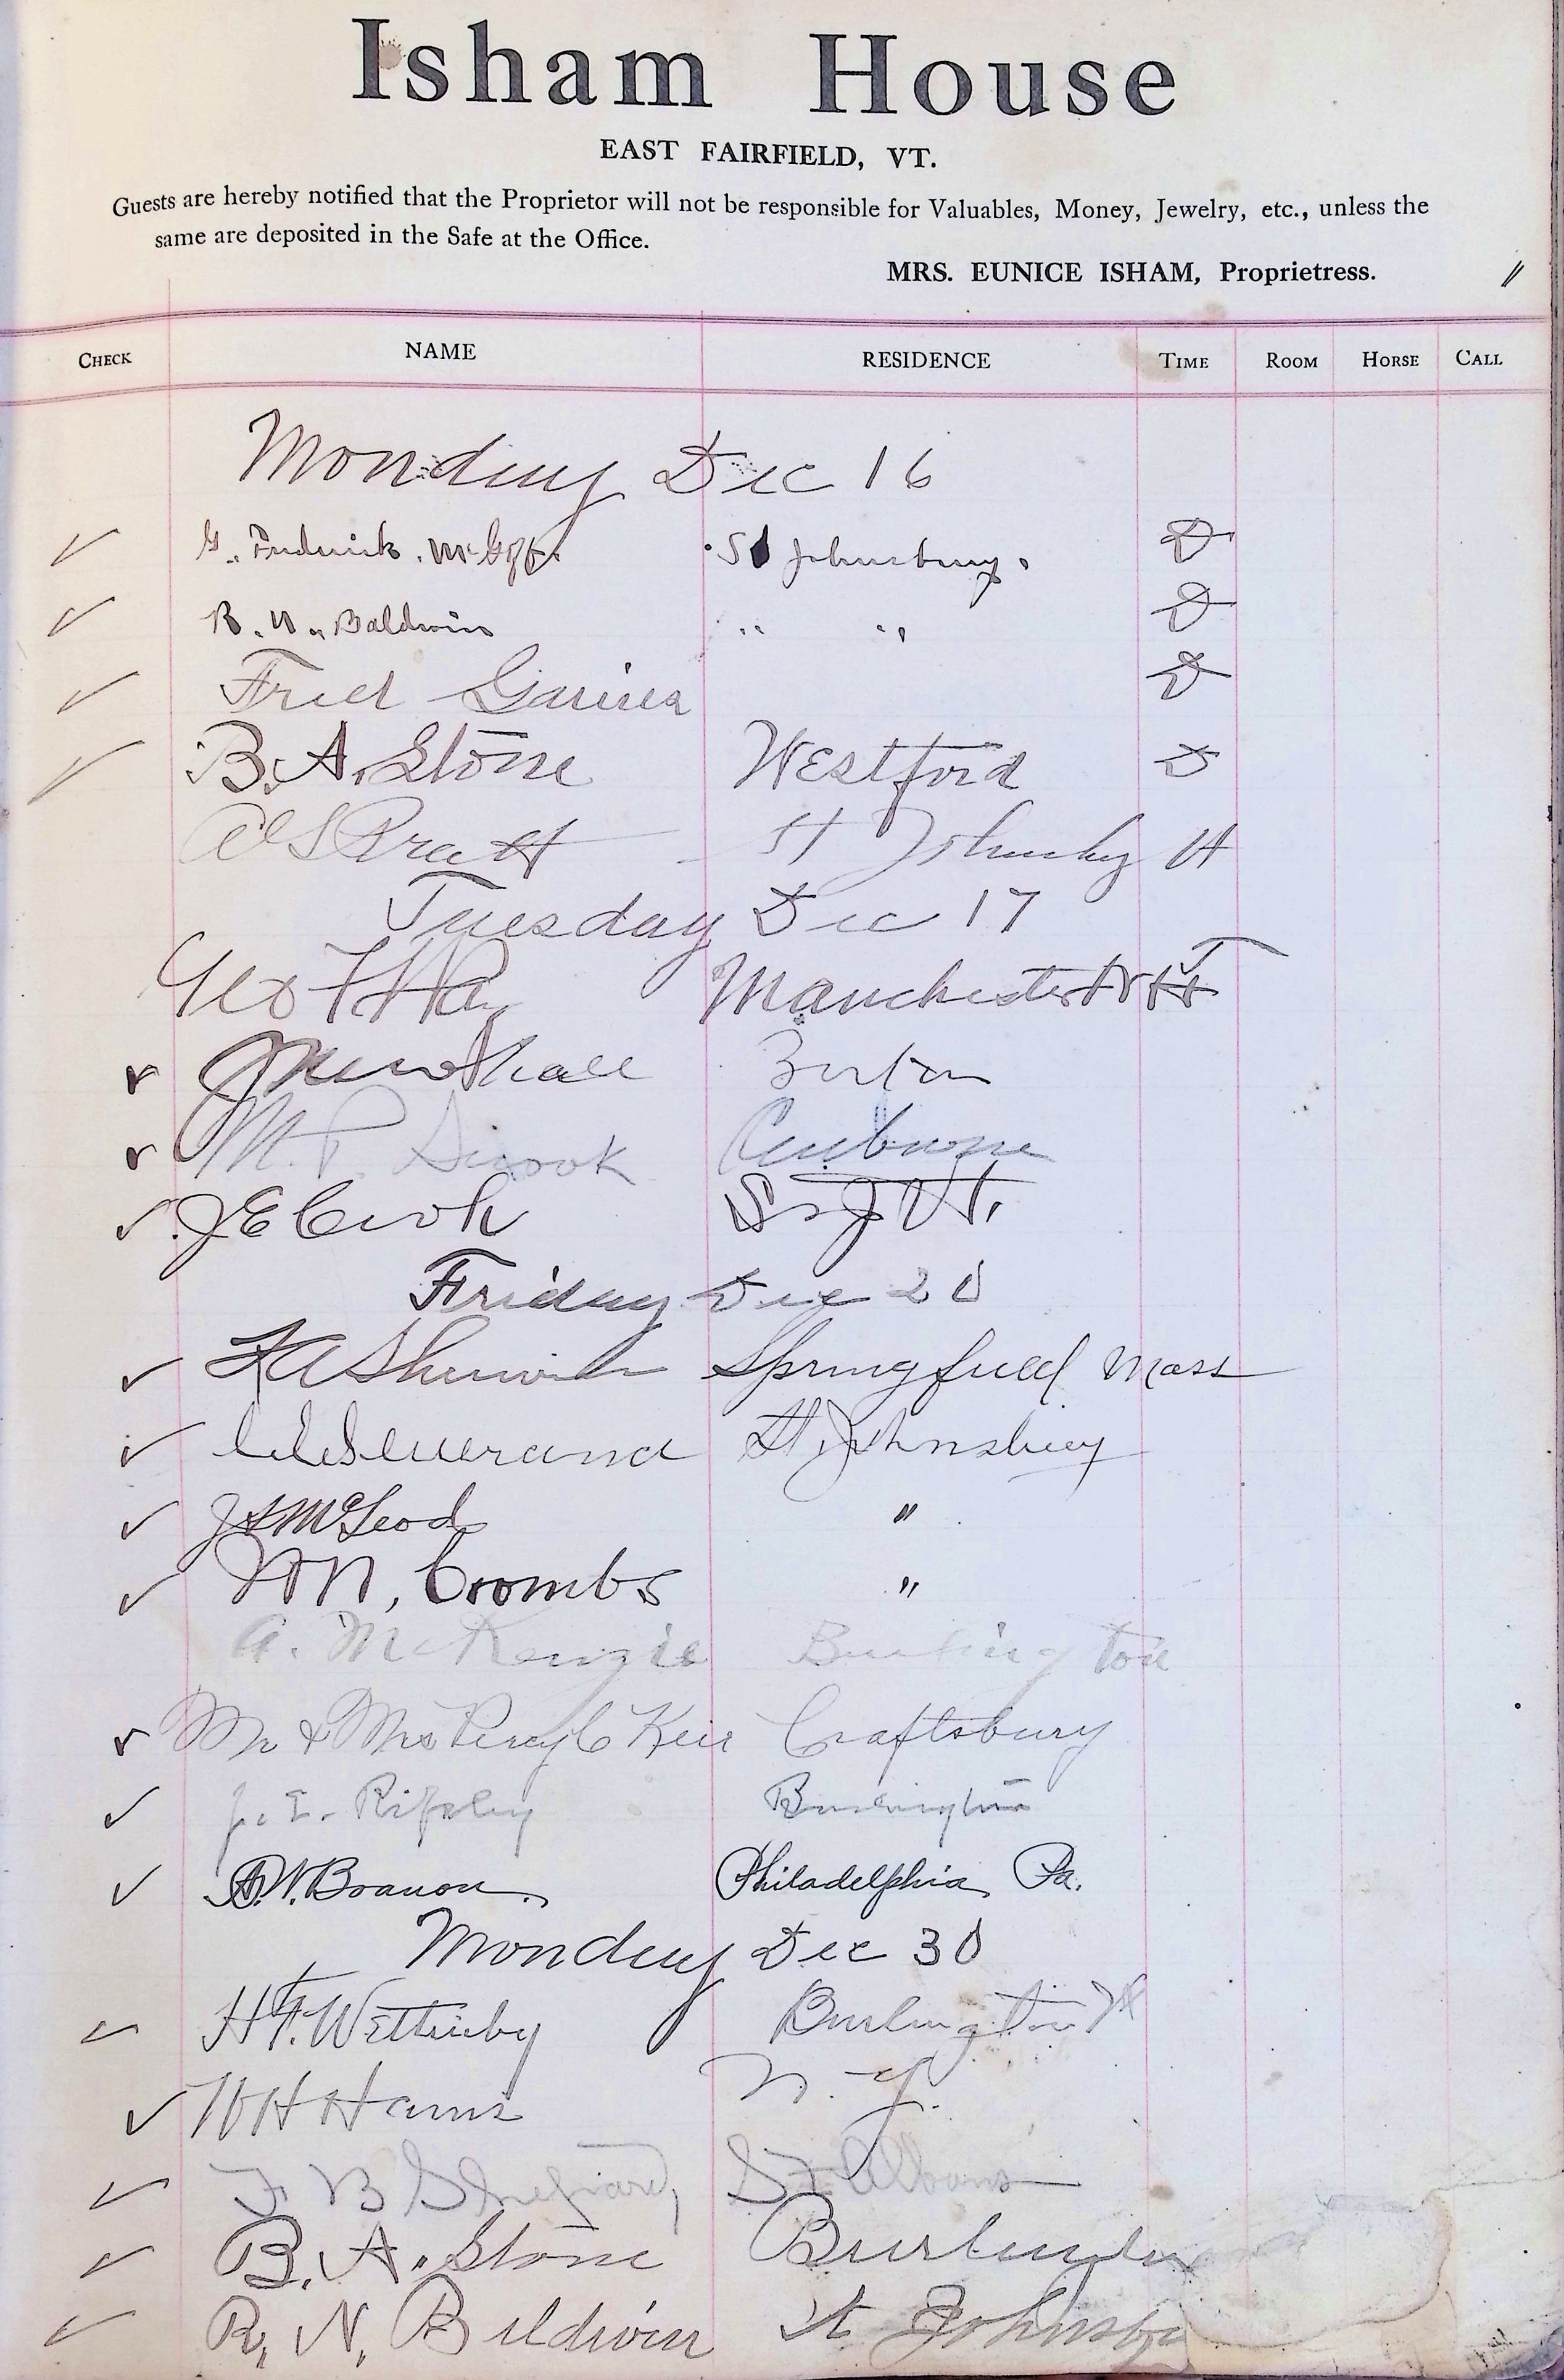 Isham House
EAST FAIRFIELD, VT.
Guests are hereby notified that the Proprietor will not be responsible for Valuables, Money, Jewelry, etc., unless the
same are deposited in the Safe at the Office.
MRS. EUNICE ISHAM, Proprietress. "
CHECK NAME RESIDENCE TIME ROOM HORSE CALL
Monday Dec 16
G. Frederick St Johnsbury. D
R. N. Baldwin " " D
Fred D
B. A. Stone Westford D
Pratt St Johnsby Vt
Tuesday Dec 17
Geo Manchester N H
Newhall
M. P.
J E Cook St J Vt.
Friday Dec 20
F A Sherwin Springfield Mass
St Johnsbury
J S McLeod "
Coombs "
A. McKenzie Burlington
Mr & Mrs Percy C Keir Craftsbury
J. E. Ripley Burlington
Philadelphia Pa.
Monday Dec 30
H F. Wetherby Burlington Vt
W H Harris N. Y.
F B Shepard, St Albans
B. A. Stone
R. N. Baldwin St Johnsby